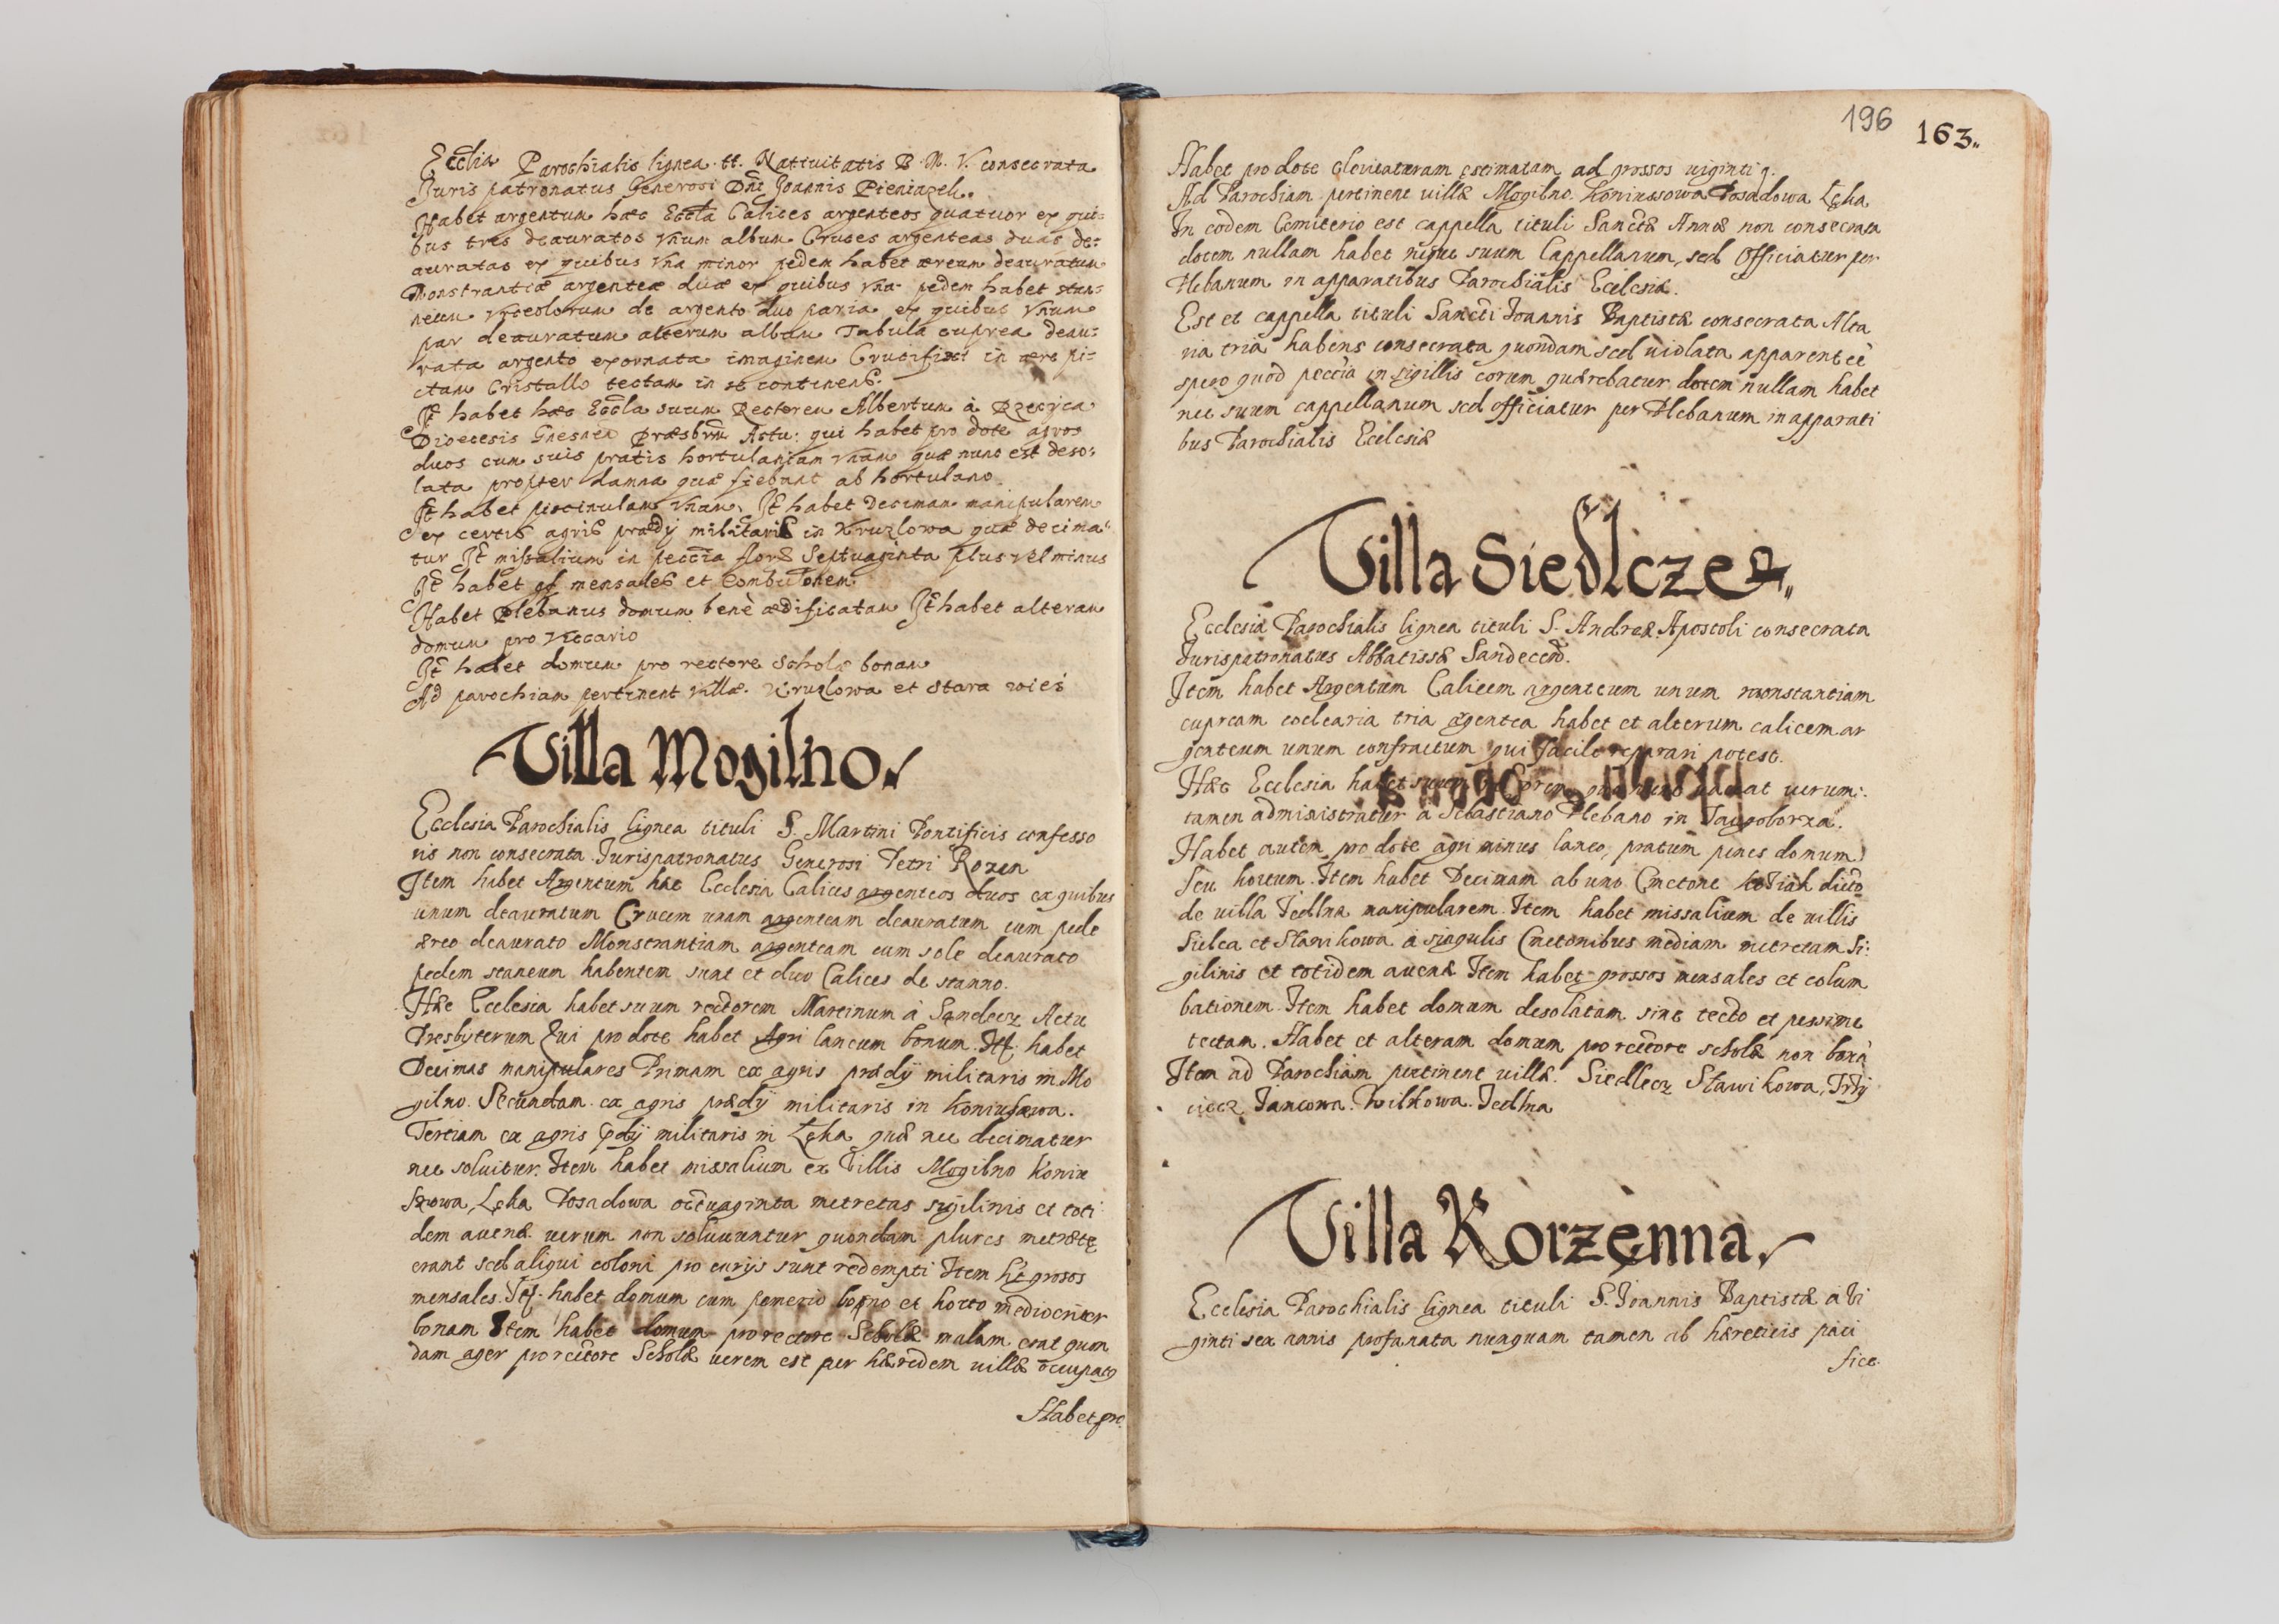 Ecclīa Parochialis lignea tt. Natiuitatis B. M. V. consecrata
Juris patronatus Generosi Dn̄i Joannis Pieniazek.
Habet argentum hæc Eccl̄a Calices argenteos quatuor ex qui-
bus tres deauratos vnum album Cruces argenteas duas de-
auratas ex quibus vna minor pedem habet æreum deauratum
Monstrantiæ argenteæ duæ ex quibus vna pedem habet stan-
neum vrceolorum de argento duo paria ex quibus vnum
par deauratum alterum album Tabula cuprea deau-
rata argento exornata imaginem Crucifixi in ære pi-
ctam Cristallo tectam in se continens.
It̄ habet hæc Eccl̄a suum Rectorem Albertum à
Dioecesis Gnesneñ Præsbrm̄ Actu: qui habet pro dote agros
duos cum suis pratis hortulaniam vnam quæ nunc est deso-
lata propter damna quæ fiebant ab hortulano.
It̄ habet piscinulam vnam, It̄ habet Decimam manipularem
ex certis agris prædij militaris in Kruzlowa quæ decima-
tur It̄ missalium in peccīa flor& Septuaginta plus vel minus
It̄ habet gſ mensales et Columbationem
Habet Plebanus domum benè ædificatam It̄ habet alteram
domum pro Viccario
It̄ habet domum pro rectore scholæ bonam
Ad parochiam pertinent villæ. Kruzlowa et Stara wieś
Villa Mogilno
Ecclesia Parochialis lignea tituli S. Martini Pontificis confesso
ris non consecrata Jurispatronatus Generosi Petri Rozen
Item habet Argentum hæc Ecclesia Calices argenteos duos ex quibus
unum deauratum Crucem unam argenteam deauratam cum pede
æreo deaurato Monstrantiam argenteam cum sole deaurato
pedem staneum habentem sunt et duo Calices de stanno.
Hæc Ecclesia habet suum rectorem Martinum à Sandecz Actu
Presbyterum Qui pro dote habet Agri laneum bonum. It. habet
Decimas manipulares Primam ex agris prædij militaris in Mo
gilno. Secundam ex agris prædij militaris in Koniuſzowa.
Tertiam ex agris pdij militaris in Łęka quæ nec decimatur
nec soluitur. Item habet missalium ex Villis Mogilno Koniu
szowa, Łęka Posadowa octuaginta metretas sigilinis et toti
dem auenæ uerum non soluuuntur quondam plures metrætę
erant sed aliqui coloni pro curijs sunt redempti Item hēt grosos
mensales. It. habet domum cum pomerio bono et horto mediocriter
bonam Item habet domum pro rectore Scholæ malam erat quon
dam ager pro rectore Scholæ uerem est per hæredem uillæ occupatꝯ
Habet pro
196 163.
Habet pro dote cleuitaturam estimatam ad grossos uiginti q.
Ad Parochiam pertinent uillæ Mogilno. Koniuszowa Posadowa Łęka
In eodem Comiterio est cappella tituli Sanctæ Annæ non consecrata
dotem nullam habet nique suum Cappellanum, sed Officiatur per
Plebanum in apparatibus Parochialis Ecclesiæ.
Est et cappella tituli Sancti Joannis Baptistæ consecrata Alta
ria tria habens consecrata quondam sed uiolata apparent eè
spero quod peccīa in sigillis eorum quærebatur dotem nullam habet
nec suum cappellanum sed officiatur per Plebanum in apparati
bus Parochialis Ecclesiæ
Villa Siedlcze
Ecclesia Parochialis lignea tituli S. Andreæ Apostoli consecrata
Jurispatronatus Abbatissæ Sandeceñ.
Item habet Argentum Calicem argenteum unum monstantiam
cupream coclearia tria argentea habet et alterum calicem ar
genteum unum confractum qui facile reparari potest.
Hæc Ecclesia habet suum nunc uacat uerum:
tamen administratur à Sebastiano Plebano in Jacgoborza.
Habet autem pro dote agri minus laneo, pratum penes domum
seu hortum. Item habet Decimam ab uno Cmetone dicto
de uilla Jedlna manipularem. Item habet missalium de uillis
Sielca et Stanikowa à singulis Cmetonibus mediam metretam si:
gilinis et totidem auenæ Item habet grossos mensales et colum
bationem. Item habet domum desolatam sine tecto et pessime
tectam. Habet et alteram domum pro rectore scholæ non bonā
Item ad Parochiam pertinent uillæ. Siedlecz Stawikowa, Trzy
cierz Jancowa. Wilkowa. Jedlna
Villa Korzęnna
Ecclesia Parochialis lignea tituli S. Joannis Baptistæ a Vi
ginti sex annis profanata nunquam tamen ab hæreticis paci
fice.